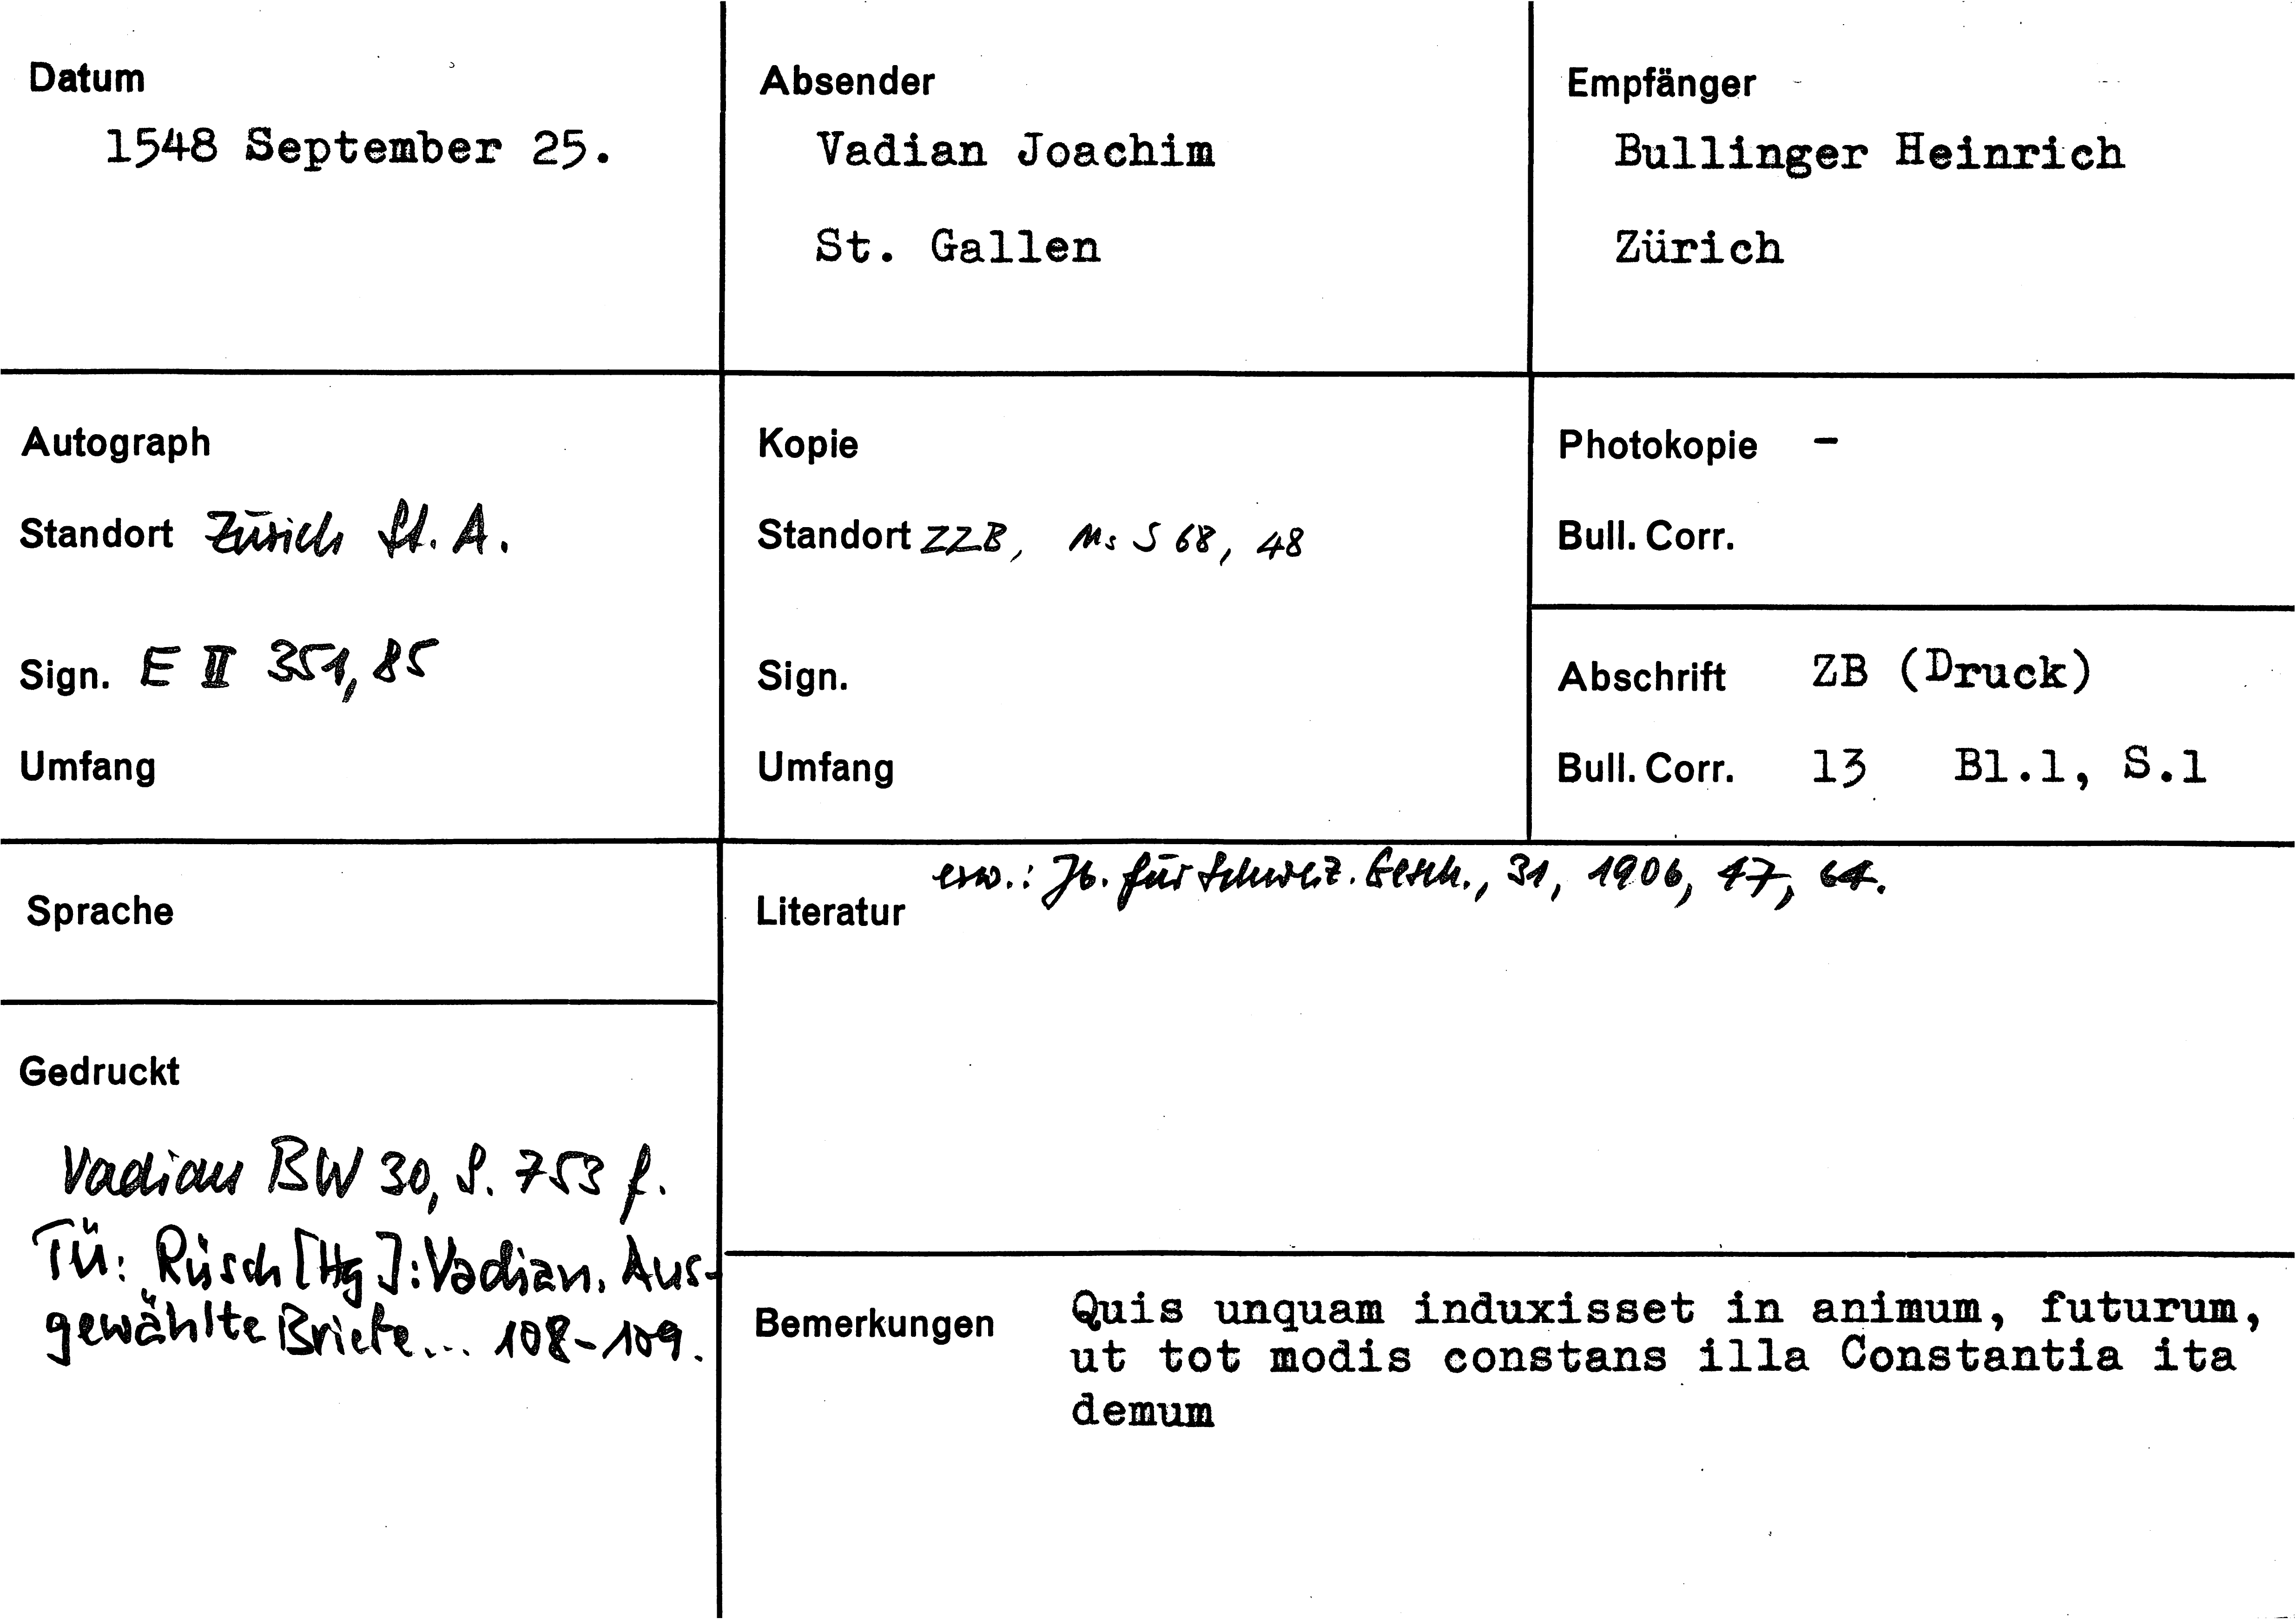 Datum
1548 September 25.
Absender
Vadian Joachim
St. Gallen
Empfänger
Bullinger Heinrich
Zürich
Autograph
Standort Zürich St. A.
Sign. E II 351, 85
Umfang
Kopie
Standort ZZB, Ms S 68, 48
Sign.
Umfang
Photokopie -
Bull. Corr.
Abschrift ZB (Druck)
Bull. Corr. 13 Bl.1, S.1
Sprache
Literatur erw.: Jb. für Schweiz. Gesch., 31, 1906, 47, 64.
Gedruckt
Vadian BW 30, S. 753 f.
TÜ: Rüsch [Hg]: Vadian. Aus-
gewählte Briefe... 108-109.
Bemerkungen Quis unquam induxisset in animum, futurum,
ut tot modis constans illa Constantia ita
demum